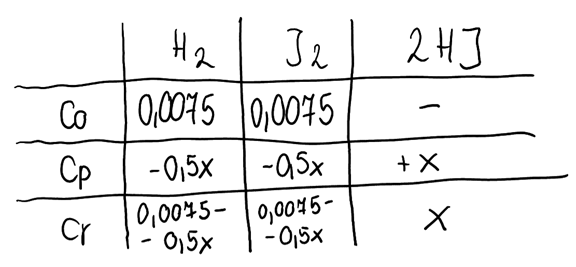 H₂ J₂ 2HJ
Co 0,0075 0,0075 -
Cp -0,5x -0,5x +x
Cr 0,0075- 0,0075- x
- 0,5x -0,5x